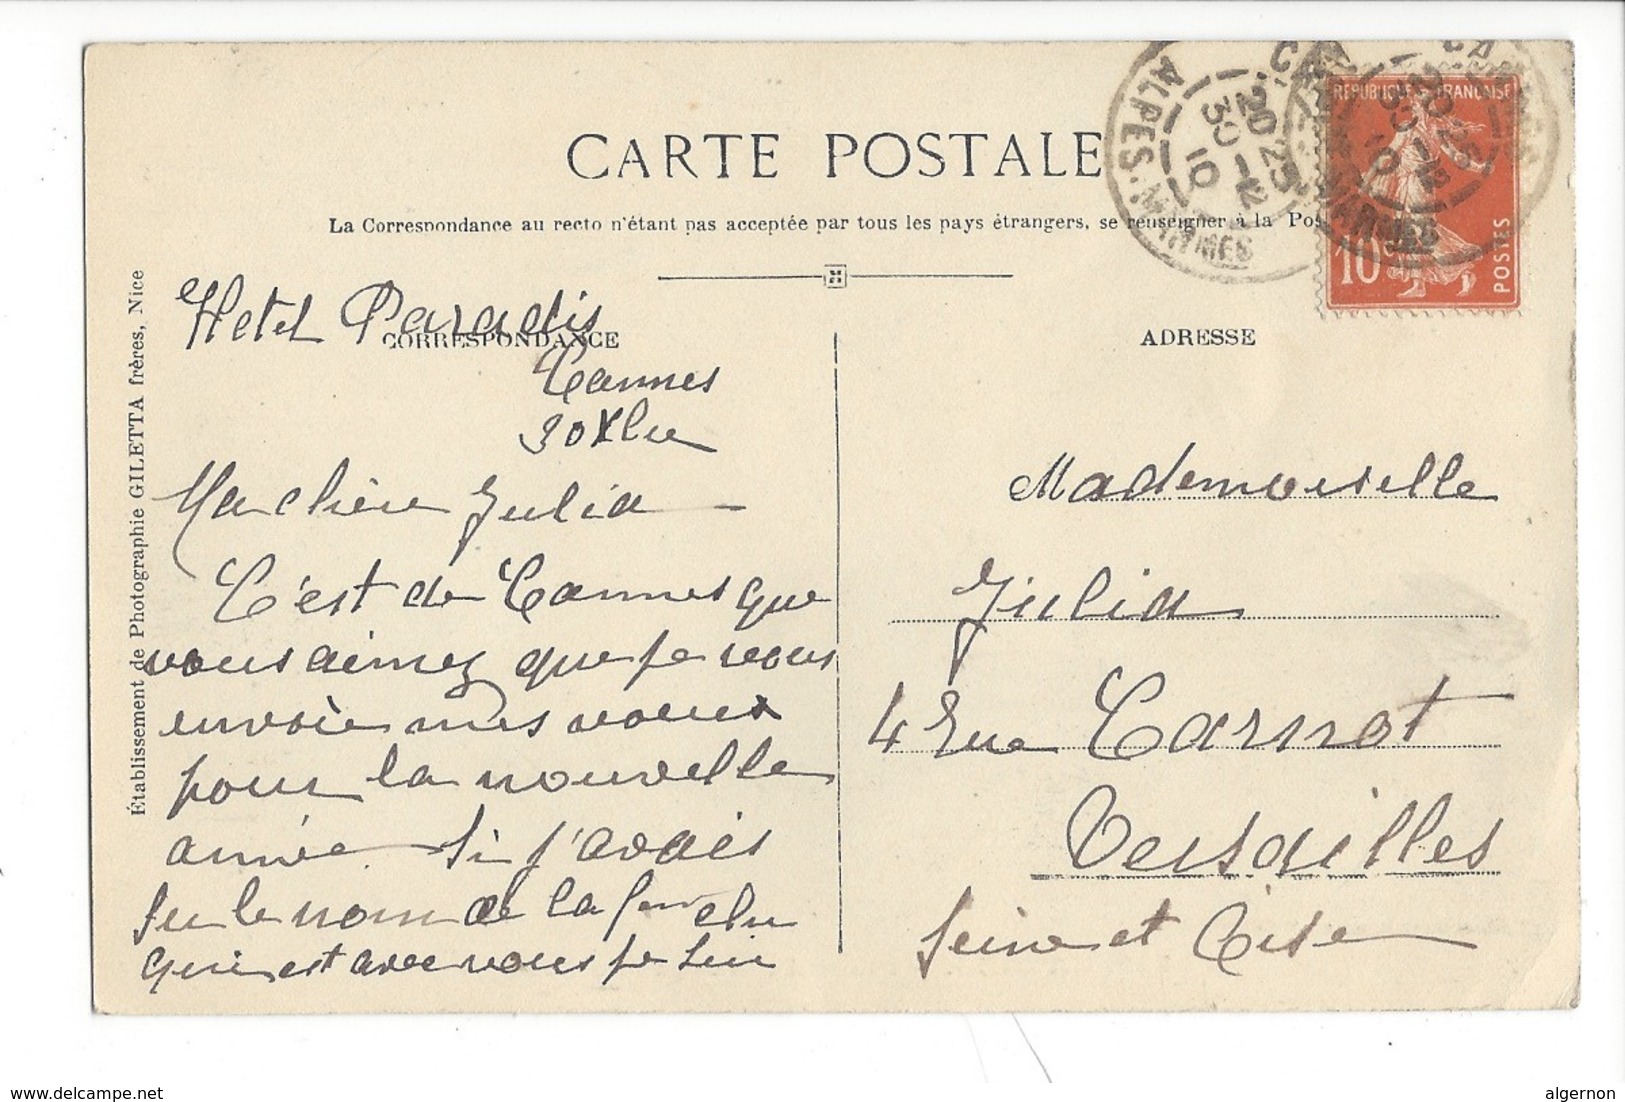 CARTE POSTALE
La Correspondance au recto n'étant pas acceptée par tous les pays étrangers, se renseigner à la Pos
CORRESPONDANCE
ADRESSE
Établissement de Photographie GILETTA frères, Nice
RÉPUBLIQUE FRANÇAISE
10
POSTES
CANNES
20 25
30 -12
10
ALPES-MARMES
Hotel Paradis
Cannes
30
Ma chère Julia
C'est de Cannes que
vous aimez que je vous
envoie mes voeux
pour la nouvelle
année Si j'avais
su le nom de la
qui est avec vous je lui
Mademoiselle
Julia
4 Rue Carnot
Versailles
Seine et Oise
www.delcampe.net
algernon